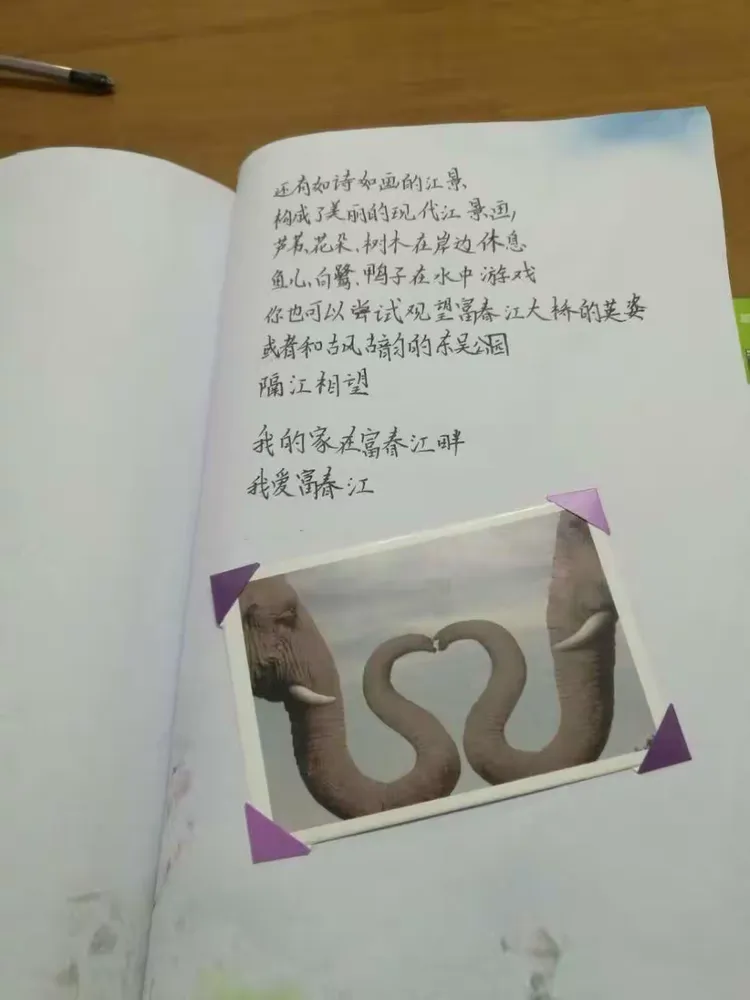 还有如诗如画的江景
构成了美丽的现代江景画,
芦苇、花朵、树木在岸边休息
鱼儿、白鹭、鸭子在水中游戏
你也可以尝试观望富春江大桥的英姿
或者和古风古韵的东吴公园
隔江相望
我的家在富春江畔
我爱富春江